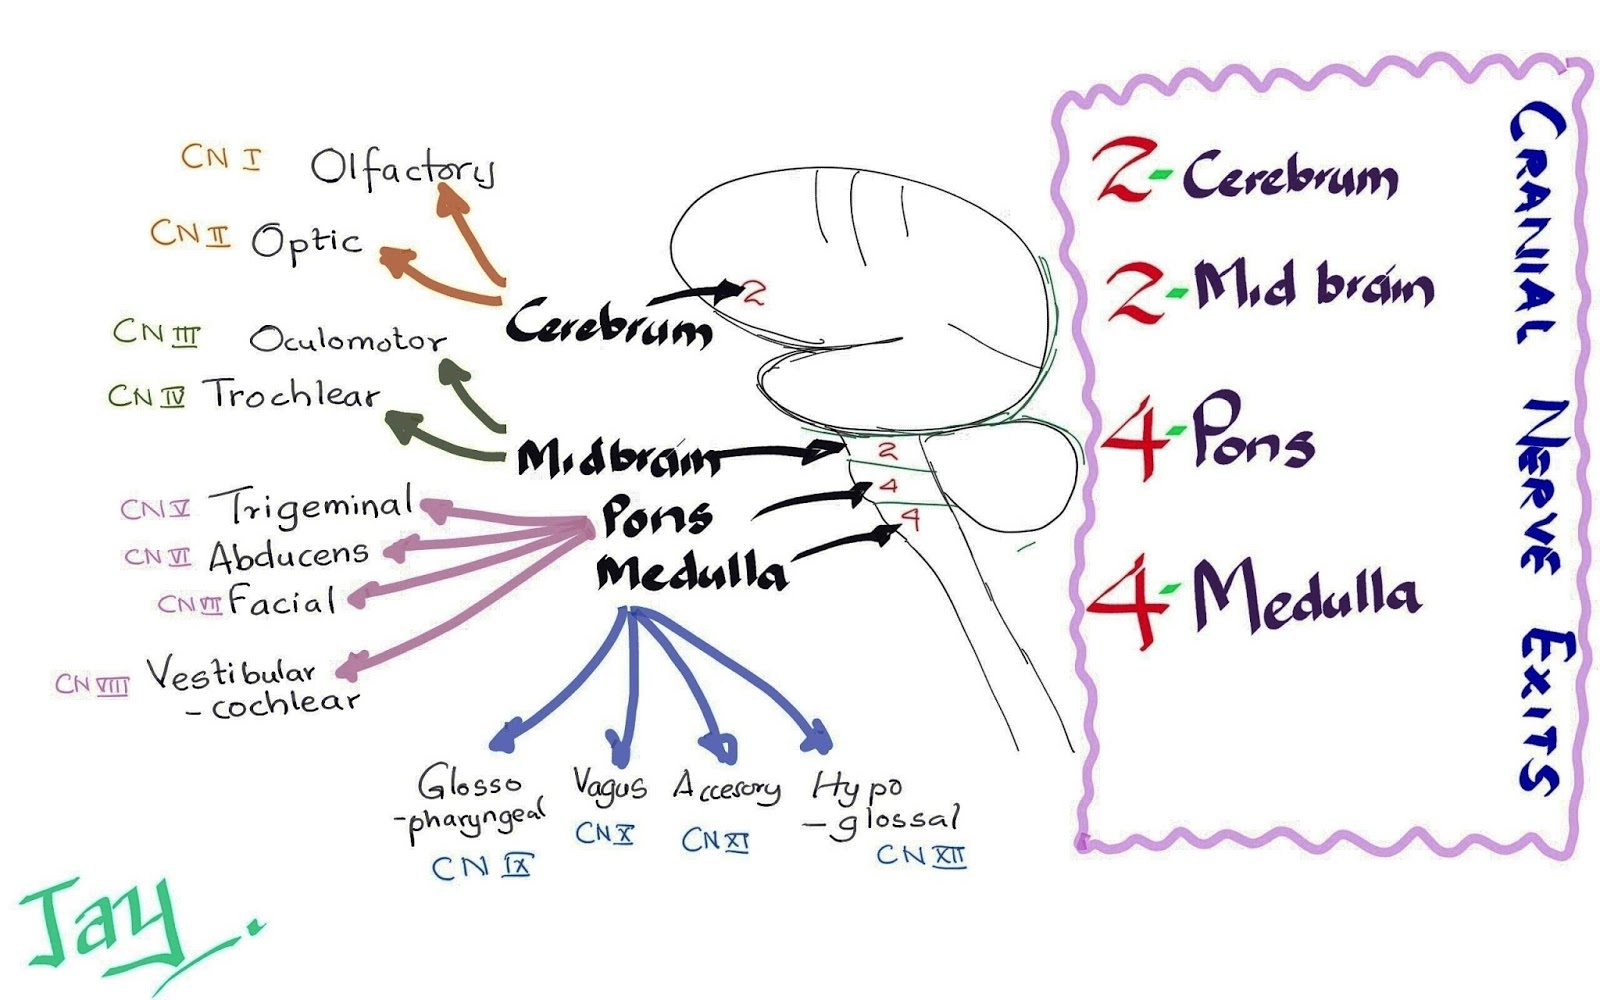 CN I Olfactory
CN II Optic
CN III Oculomotor
CN IV Trochlear
CN V Trigeminal
CN VI Abducens
CN VII Facial
CN VIII Vestibular
-cochlear
Cerebrum
Midbrain
Pons
Medulla
2
2
4
4
Glosso
-pharyngeal
CN IX
Vagus
CN X
Accesory
CN XI
Hypo
-glossal
CN XII
2-Cerebrum
2-Mid brain
4-Pons
4-Medulla
CRANIAL NERVE EXITS
Jay.